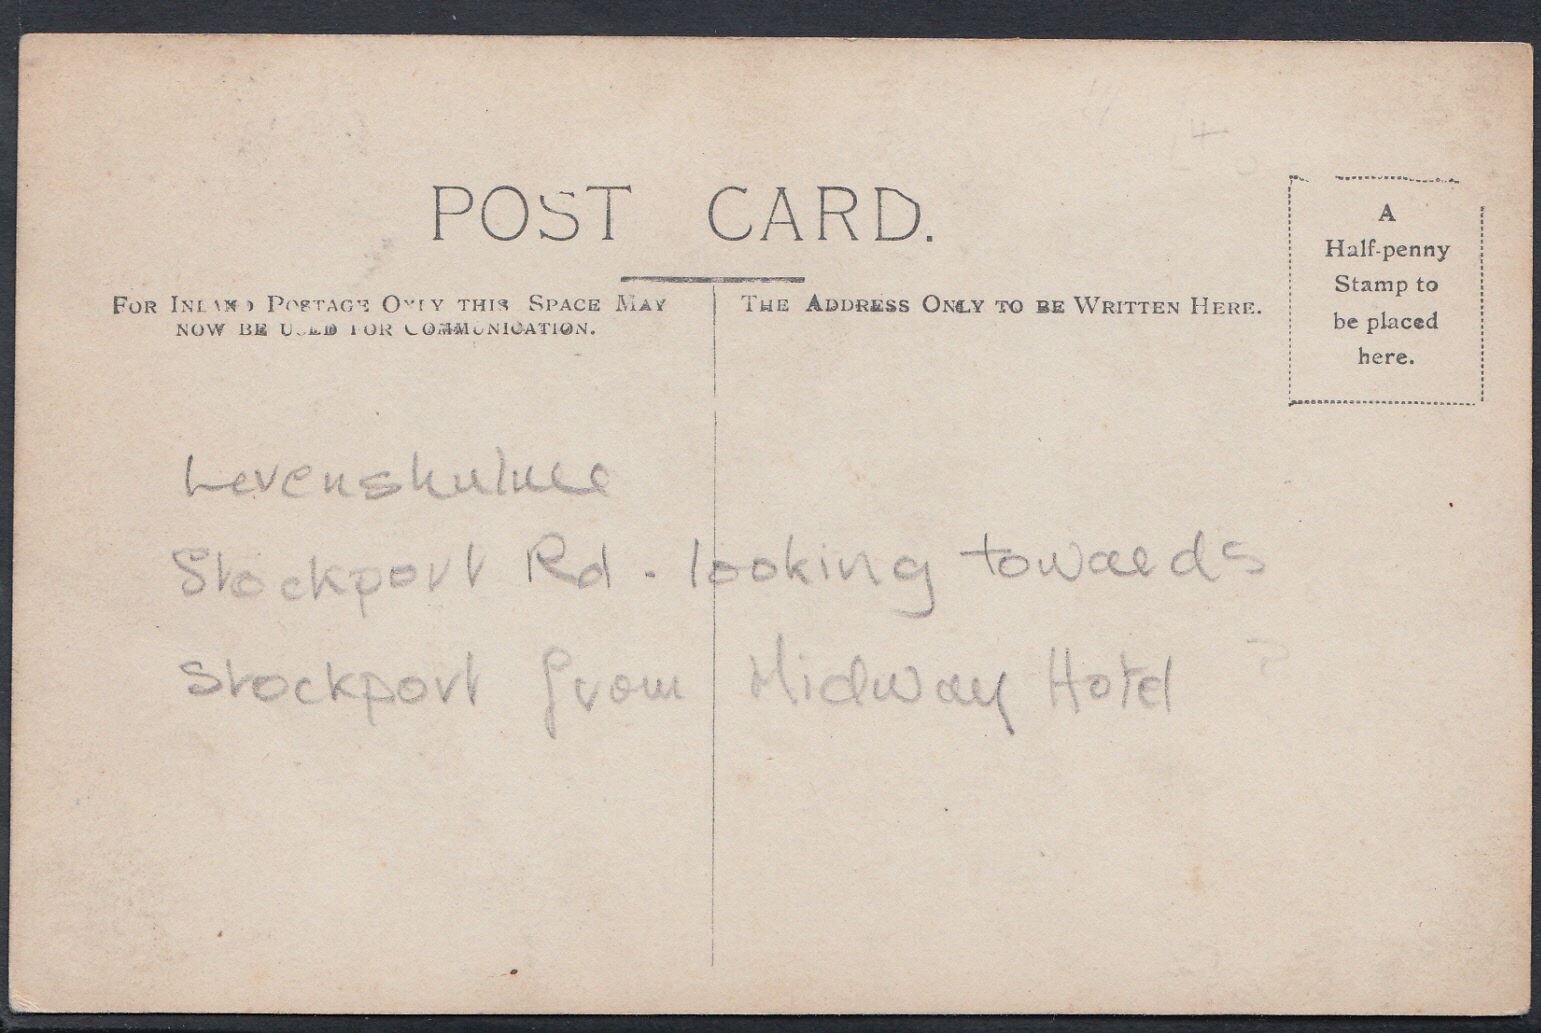 POST CARD.
FOR INLAND POSTAGE ONLY THIS SPACE MAY
NOW BE USED FOR COMMUNICATION.
THE ADDRESS ONLY TO BE WRITTEN HERE.
A
Half-penny
Stamp to
be placed
here.
Levenshulme
Stockport Rd. looking towards
Stockport from Midway Hotel ?